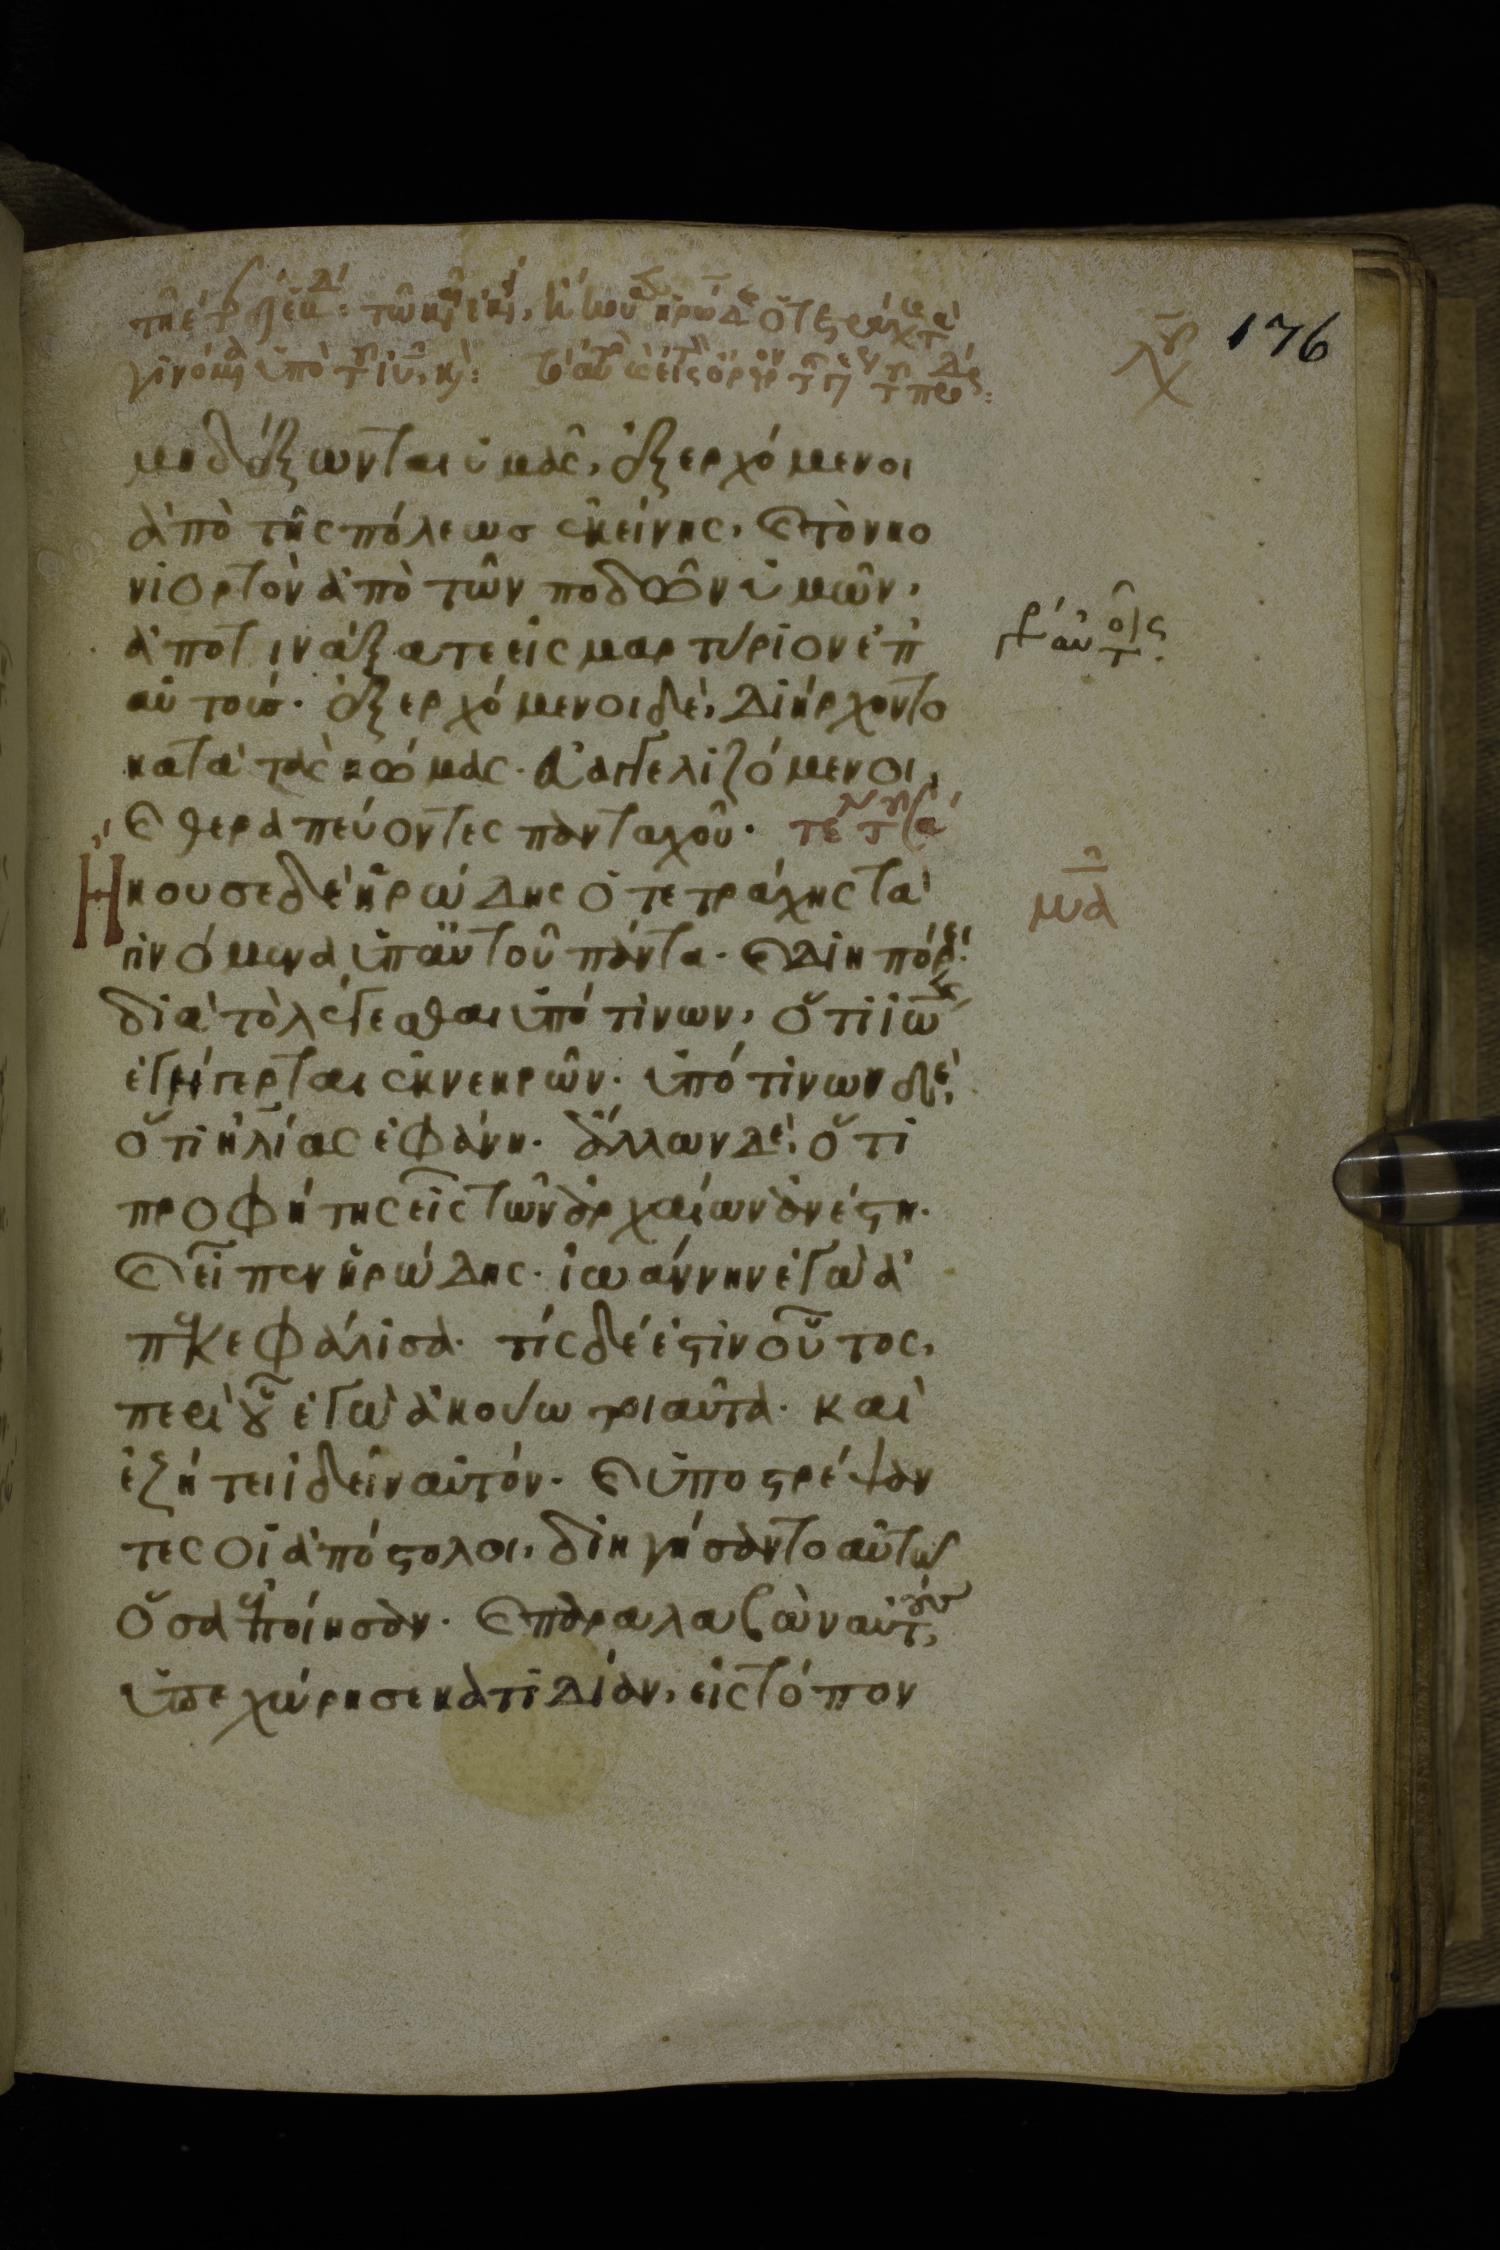 176
μη δέξωνται ὑμᾶς, ἐξερχόμενοι
ἀπὸ τῆς πόλεως ἐκείνης, ϗ τὸν κο
νιορτὸν ἀπὸ τῶν ποδῶν ὑμῶν,
ἀποτινάξατε εἰς μαρτύριον ἐπ'
αὐτοῖς. ἐξερχόμενοι δὲ, διήρχοντο
κατὰ τὰς κώμας. εὐαγγελιζόμενοι,
ϗ θεραπεύοντες πανταχοῦ.
Ἤκουσε δὲ ἡρώδης ὁ τετράχης τὰ
γινόμενα ὑπ' αὐτοῦ πάντα. ϗ διηπόρει
διὰ τὸ λέγεσθαι ὑπό τινων, ὅτι ἰω
ἐγήγερται ἐκ νεκρῶν. ὑπό τινων δὲ,
ὅτι ἠλίας ἐφάνη. ἄλλων δὲ, ὅτι
προφήτης εἷς τῶν ἀρχαίων ἀνέστη.
ϗ εἶπεν ἡρώδης. ἰωάννην ἐγὼ ἀ
πεκεφάλισα. τίς δέ ἐστιν οὗτος,
περὶ οὗ ἐγὼ ἀκούω τοιαῦτα. καὶ
ἐζήτει ἰδεῖν αὐτόν. ϗ ὑποστρέψαν
τες οἱ ἀπόστολοι, διηγήσαντο αὐτῶ
ὅσα ἐποίησαν. ϗ παραλαβὼν αὐτούς,
ὑπεχώρησε κατιδίαν, εἰς τόπον
μα